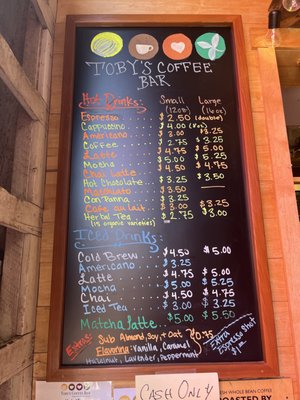 TOBY'S COFFEE
BAR
Hot Drinks: Small Large
(12oz) (16oz)
Espresso $2.50 (double)
Cappuccino $4.00
Americano $3.00 $3.25
Coffee $2.75 $3.25
Latte $4.75 $5.25
Mocha $5.00 $5.25
Chai Latte $4.50 $4.75
Hot Chocolate $3.25 $3.50
Macchiato $3.50
Con Panna $3.25
Café au lait $3.00 $3.25
Herbal Tea $2.75 $3.00
(15 organic varieties)
Iced Drinks:
Cold Brew $4.50 $5.00
Americano $3.25
Latte $4.75 $5.00
Mocha $5.00 $5.25
Chai $4.50 $4.75
Iced Tea $3.00 $3.25
Matcha latte $5.00
Extras: Sub Almond, Soy, + Oat $0.75
Flavoring: Vanilla, Caramel,
Hazelnut, Lavender, Peppermint
Extra
Espresso Shot
CASH ONLY
FRESH WHOLE BEAN COFFEE
ROASTED BY